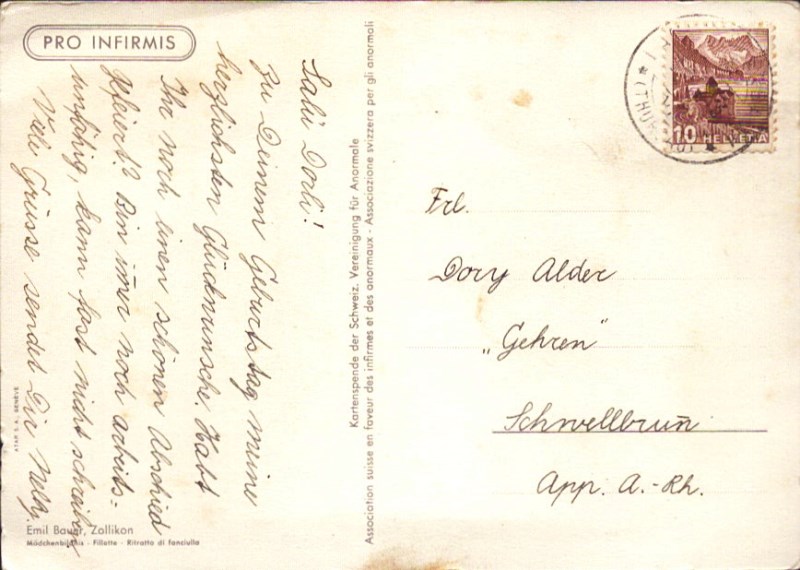 PRO INFIRMIS
Salü Dorli!
Zu Deinem Geburtstag meine
herzlichsten Glückwünsche. Habt
Ihr noch einen schönen Abschied
gefeiert? Bin im̄er noch arbeits-
unfähig, kann fast nicht schreiben
Viele Grüsse sendet Dir Nelly.
Emil Bauer, Zollikon
Mädchenbildnis - Fillette - Ritratto di fanciulla
ATAR S.A., GENÈVE
Kartenspende der Schweiz. Vereinigung für Anormale
Association suisse en faveur des infirmes et des anormaux - Associazione svizzera per gli anormali
10 HELVETIA
Frl.
Dory Alder
„Gehren"
Schwellbrun̄
App. A.-Rh.